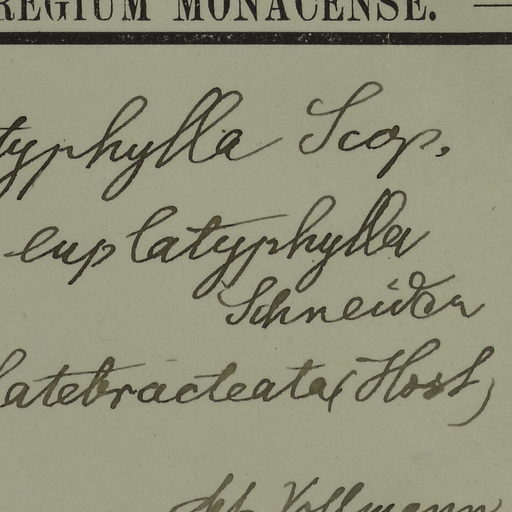 REGIUM MONACENSE. —
typhylla Scop.
euplatyphylla
Schneider
latebracteata (Host)
det. Vollmann